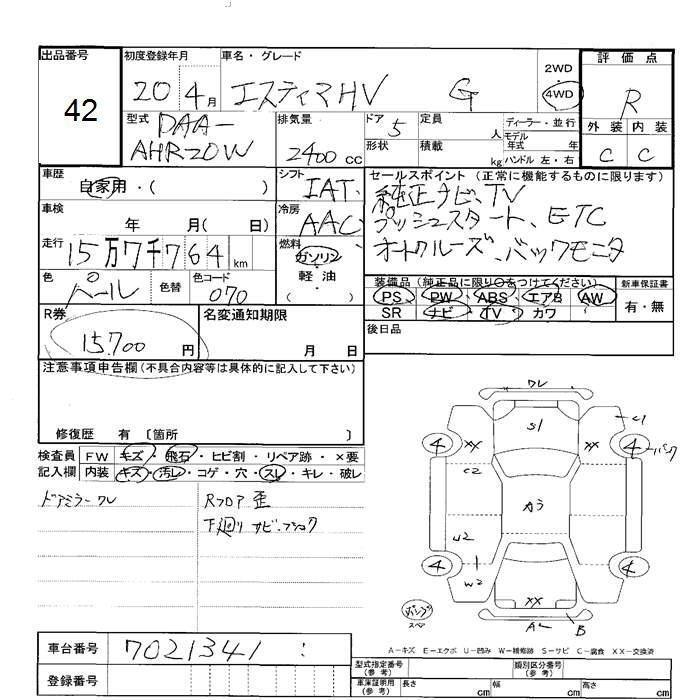 出品番号
42
初度登録年月
20 4月
車名・グレード
エスティマHV G
2WD
4WD
評価点
R
外装 内装
C C
型式
DAA-
AHR20W
排気量
2400 cc
ドア 5
形状
定員 人
積載 kg
ディーラー・並行
モデル
年式 年
ハンドル 左・右
車歴
自家用・( )
シフト
IAT
セールスポイント (正常に機能するものに限ります)
純正ナビ、TV
プッシュスタート、ETC
オートクルーズ、バックモニタ
車検
年 月( 日)
冷房
AAC
走行
15万7千764 km
燃料
ガソリン
軽油
( )
色
パール
色替
色コード
070
装備品 (純正品に限り○をつけてください)
PS PW ABS エアB AW
SR ナビ TV カワ
新車保証書
有・無
後日品
R券
15.700 円
名変通知期限
月 日
注意事項申告欄(不具合内容等は具体的に記入して下さい)
修復歴 有 〔箇所 〕
検査員
記入欄
FW キズ・飛石・ヒビ割・リペア跡・×要
内装 キズ・汚レ・コゲ・穴・スレ・キレ・破レ
ドアミラーワレ
Rフロア歪
下廻りサビ・フショク
ワレ
S1
C1
4
XX
XX
4
パンク
C2
カラ
W2
W2
4
4
XX
A
B
スペ
A－キズ E－エクボ U－凹み W－補修跡 S－サビ C－腐食 XX－交換済
車台番号
7021341
登録番号
型式指定番号
(参考)
類別区分番号
(参考)
車庫証明用
(参考)
長さ cm
幅 cm
高さ cm